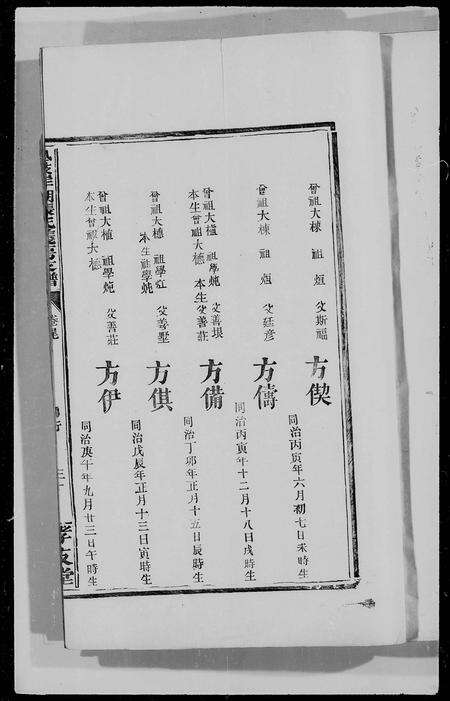 曾祖大棟 祖烜 父斯福
方偰
同治丙寅年六月初七日未時生
曾祖大棟 祖烜 父廷彦
方儔
同治丙寅年十二月十八日戌時生
曾祖大櫃 祖學 父善垠
本生曾祖大橞 本生父善莊
方備
同治丁卯年正月十五日辰時生
曾祖大橞 祖學 父善墅
本生祖學
方倛
同治戊辰年正月十三日寅時生
曾祖大 祖學 父善莊
本生曾祖大橞
方伊
同治庚午年九月廿三日午時生
孝友堂